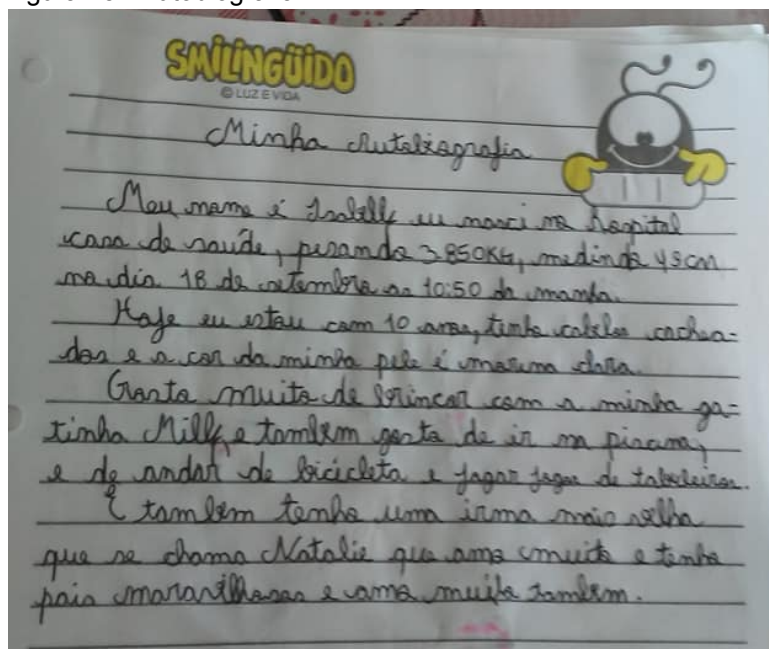 SMILINGÜIDO
© LUZ E VIDA
Minha Autobiografia
Meu nome é Isabelly eu nasci no hospital
casa de saúde, pesando 3.850KG, medindo 49cm
no dia 18 de setembro as 10:50 da manhã.
Hoje eu estou com 10 anos, tenho cabelos cachea-
dos e a cor da minha pele é morena clara.
Gosto muito de brincar com a minha ga-
tinha Milly, e também gosto de ir na piscina,
e de andar de bicicleta e jogar jogos de tabuleiros.
E também tenho uma irma mais velha
que se chama Natalie que amo muito e tenho
pais maravilhosos e amo muito também.